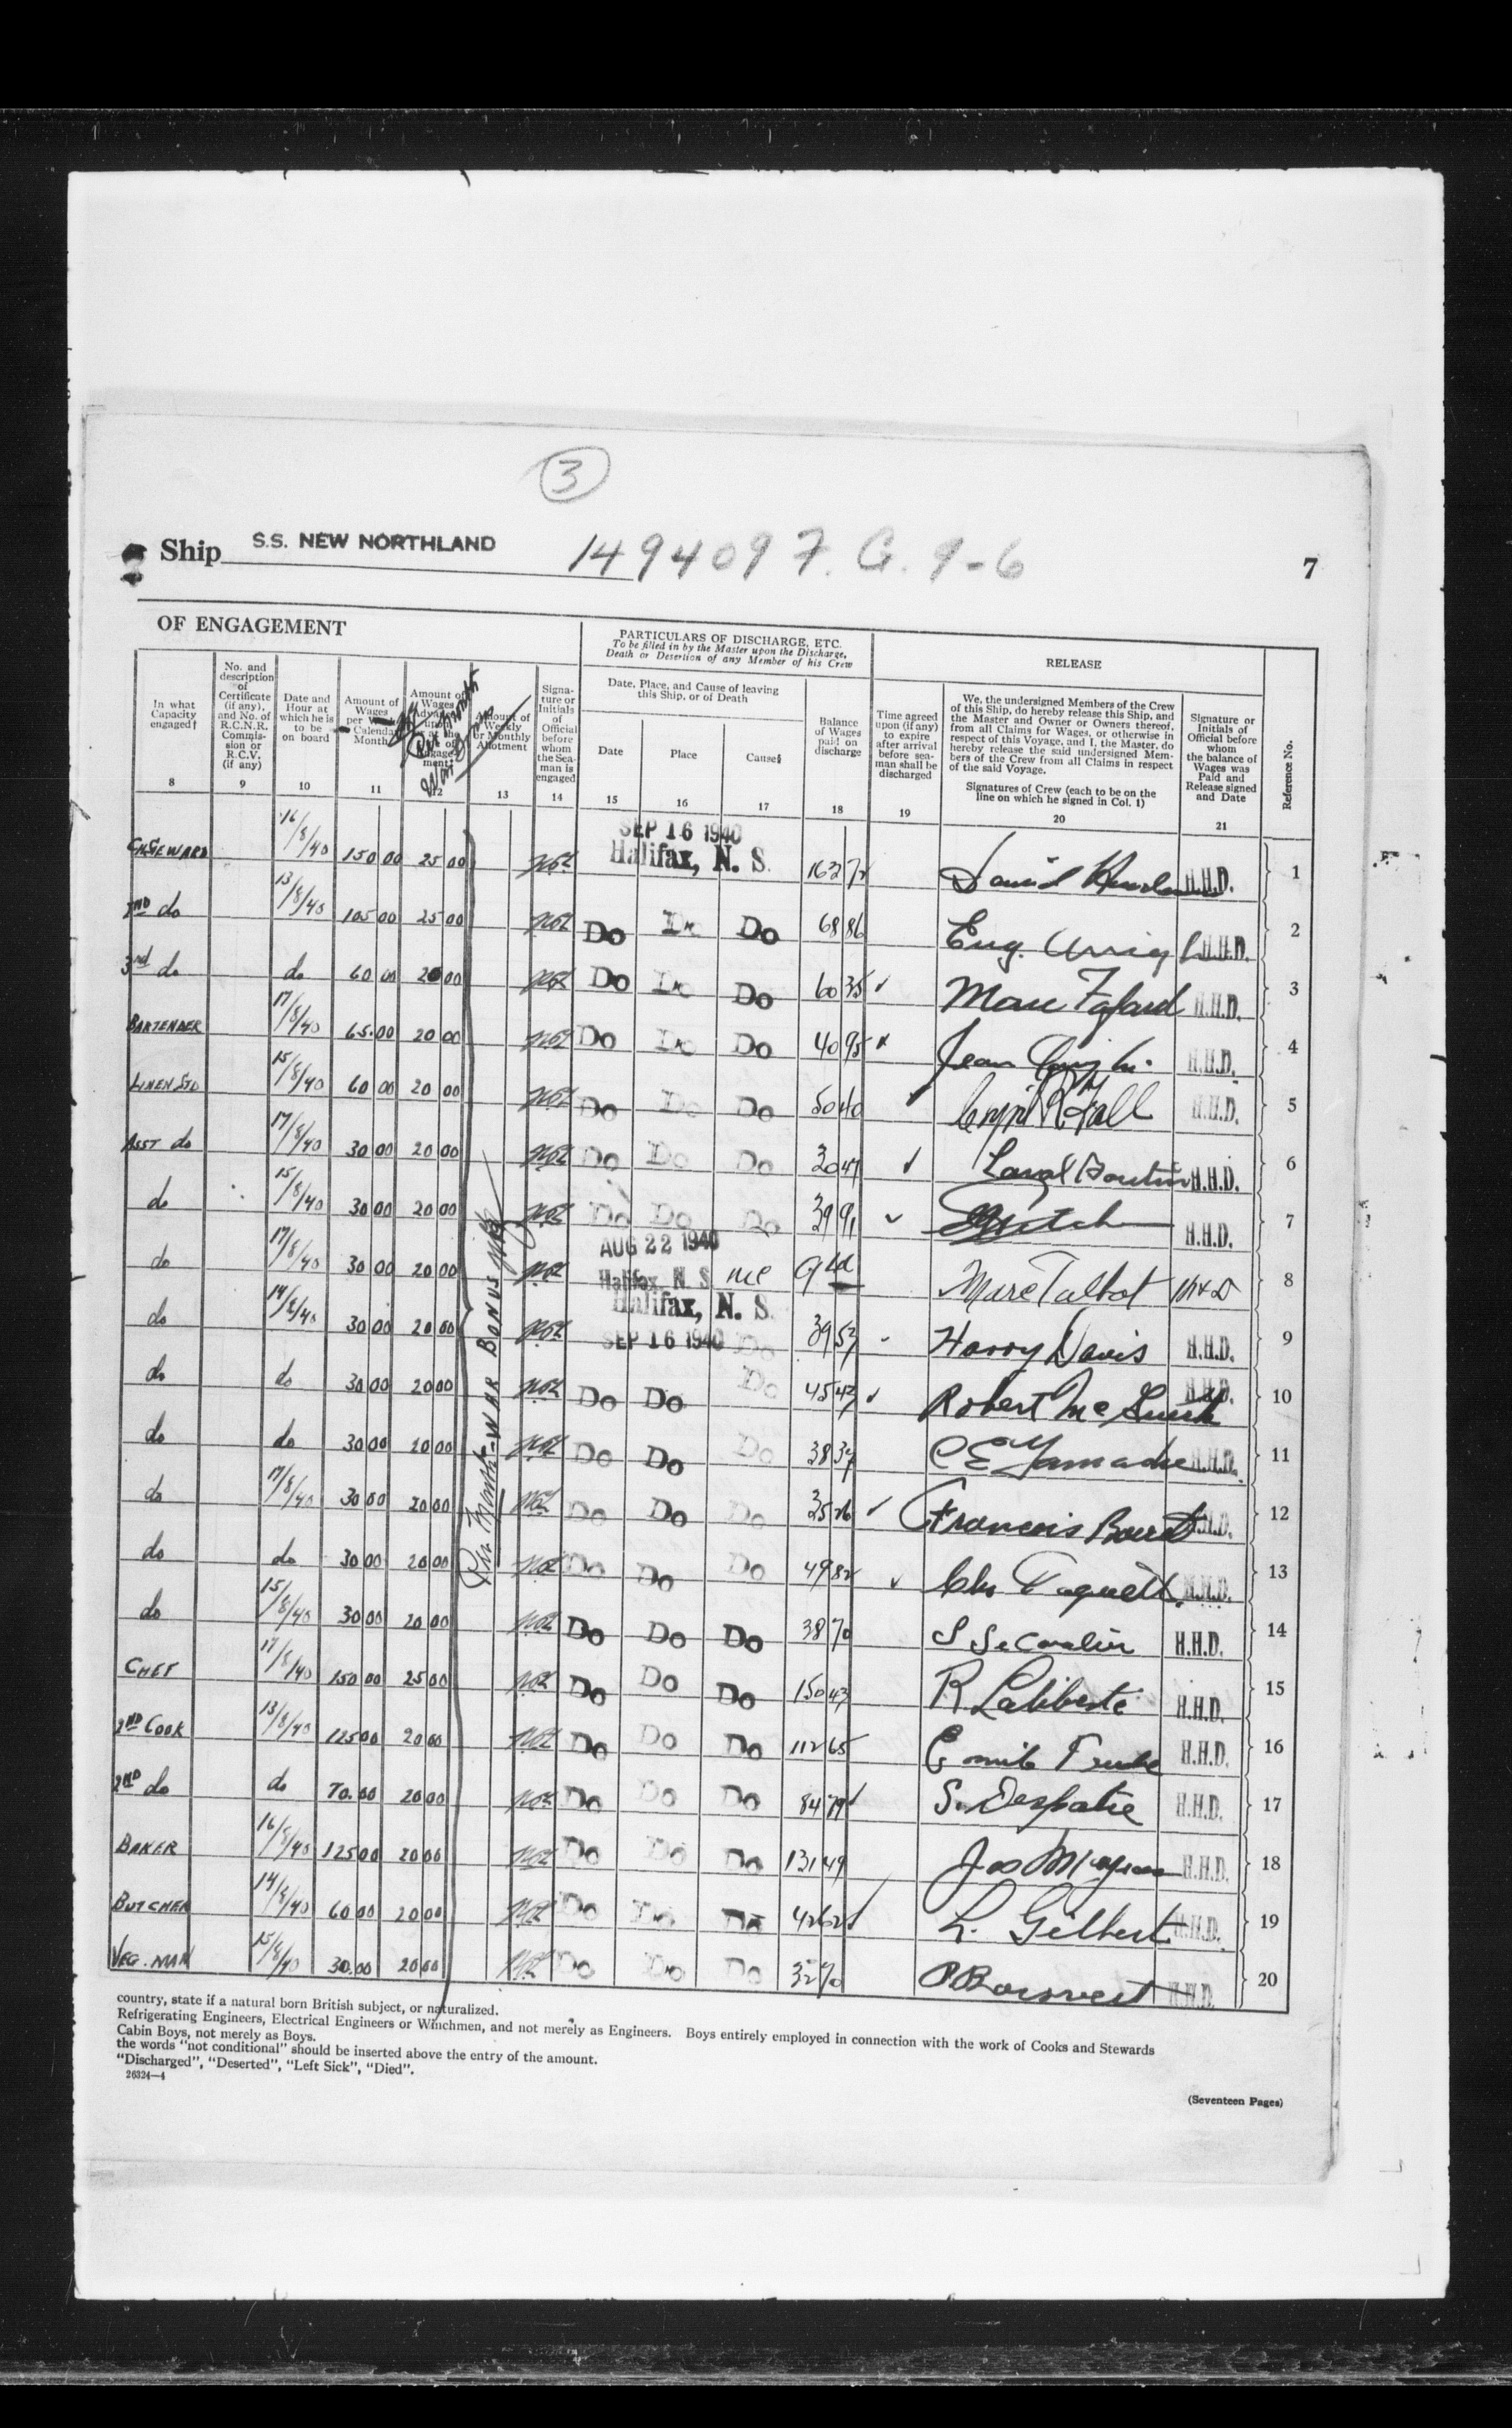 3
Ship S.S. NEW NORTHLAND 149409 7. G. 9-6 7
OF ENGAGEMENT
PARTICULARS OF DISCHARGE, ETC.
To be filled in by the Master upon the Discharge,
Death or Desertion of any Member of his Crew
RELEASE
In what Capacity engaged†
No. and description of Certificate (if any), and No. of R.C.N.R. Commis- sion or R.C.V. (if any)
Date and Hour at which he is to be on board
Amount of Wages per Calendar Month
Amount of Wages
Per Month War Bonus
Amount of Weekly or Monthly Allotment
Signa- ture or Initials of Official before whom the Sea- man is engaged
Date, Place, and Cause of leaving this Ship, or of Death
Date
Place
Cause§
Balance of Wages paid on discharge
Time agreed upon (if any) to expire after arrival before sea- man shall be discharged
We, the undersigned Members of the Crew of this Ship, do hereby release this Ship, and the Master and Owner or Owners thereof, from all Claims for Wages, or otherwise in respect of this Voyage, and I, the Master, do hereby release the said undersigned Mem- bers of the Crew from all Claims in respect of the said Voyage.
Signatures of Crew (each to be on the line on which he signed in Col. 1)
Signature or Initials of Official before whom the balance of Wages was Paid and Release signed and Date
Reference No.
8 9 10 11 12 13 14 15 16 17 18 19 20 21
Per Month WAR BONUS
CH. STEWARD 16/8/40 150 00 25 00 SEP 16 1940 Halifax, N. S. 163 72 David H.H.D. 1
2ND do 13/8/40 105 00 25 00 Do Do Do 68 86 Eug. H.H.D. 2
3rd do do 60 00 20 00 Do Do Do 60 35 Marc Fafard H.H.D. 3
BARTENDER 17/8/40 65.00 20 00 Do Do Do 40 95 Jean H.H.D. 4
LINEN STD 15/8/40 60 00 20 00 Do Do Do 50 40 H.H.D. 5
ASST do 17/8/40 30 00 20 00 Do Do Do 30 47 H.H.D. 6
do 15/8/40 30 00 20 00 Do Do Do 39 91 H.H.D. 7
do 17/8/40 30 00 20 00 AUG 22 1940 Halifax, N. S. Marc Talbot 8
do 14/8/40 30 00 20 00 Halifax, N. S. SEP 16 1940 Do 39 57 Harry Davis H.H.D. 9
do do 30 00 20 00 Do Do Do 45 47 Robert H.H.D. 10
do do 30 00 20 00 Do Do Do 38 37 C E H.H.D. 11
do 17/8/40 30 00 20 00 Do Do Do 35 26 Francois H.H.D. 12
do do 30 00 20 00 Do Do Do 49 82 H.H.D. 13
do 15/8/40 30 00 20 00 Do Do Do 38 70 H.H.D. 14
CHEF 17/8/40 150 00 25 00 Do Do Do 150 43 R Laliberté H.H.D. 15
2ND COOK 13/8/40 125 00 20 00 Do Do Do 112 65 H.H.D. 16
2ND do do 70.00 20 00 Do Do Do 84 79 S. Despatie H.H.D. 17
BAKER 16/8/40 125 00 20 00 Do Do Do 131 49 Jos H.H.D. 18
BUTCHER 14/8/40 60 00 20 00 Do Do Do 42 62 L. Gilbert H.H.D. 19
VEG. MAN 15/8/40 30.00 20 00 Do Do Do 32 70 H.H.D. 20
country, state if a natural born British subject, or naturalized.
Refrigerating Engineers, Electrical Engineers or Winchmen, and not merely as Engineers. Boys entirely employed in connection with the work of Cooks and Stewards
Cabin Boys, not merely as Boys.
the words "not conditional" should be inserted above the entry of the amount.
"Discharged", "Deserted", "Left Sick", "Died".
26324—4
(Seventeen Pages)